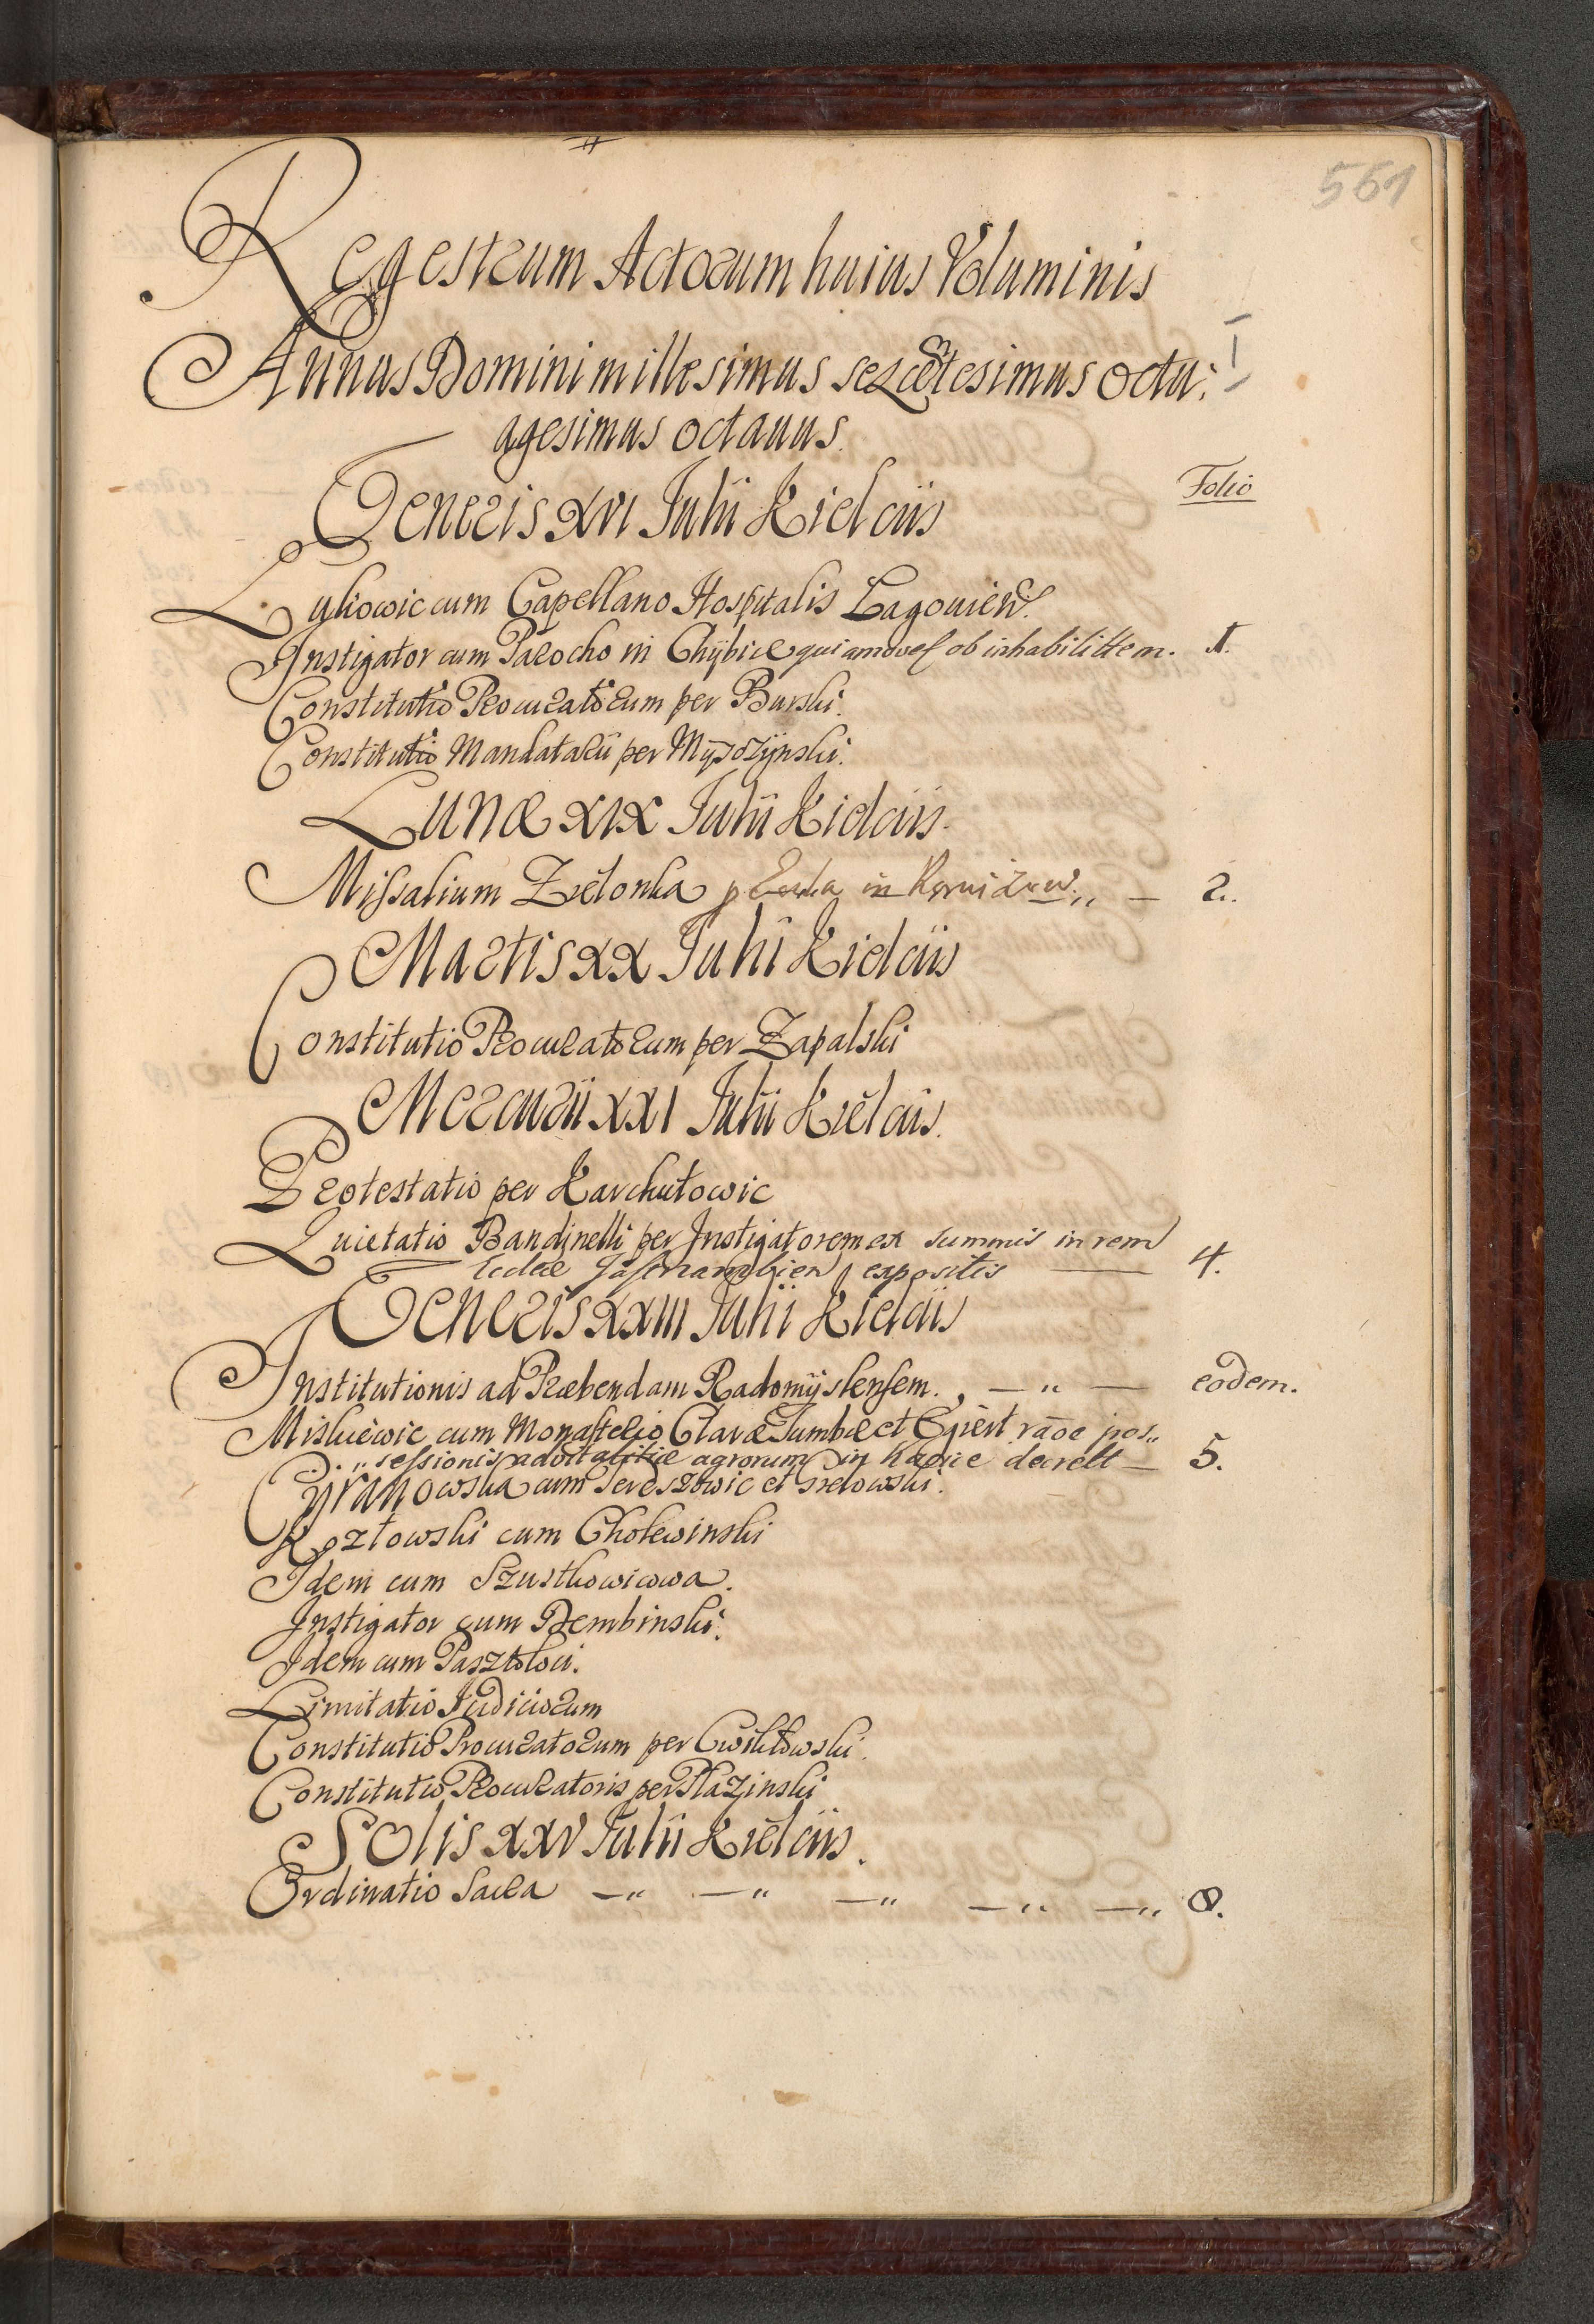 561
Regestrum Actorum huius Voluminis
Annus Domini millesimus sexcētesimus octu:
agesimus octauus.
Folio
Veneris XVI Julii Kielciis
Lykowic cum Capellano Hospitalis Lagouien.
Instigator cum Parocho in Chybice qui amovef ob inhabilittem. 1.
Constitutio Procuratorum per Burski.
Constitutio Mandatarii per
Lunæ XIX Julii Kielciis.
Missalium Zielonka p in — 2.
Martis XX Julii Kielciis
Constitutio Procuratorum per Zapalski
Mercurii XXI Julii Kielciis.
Protestatio per Karchutowic
Quietatio Bandinelli per Instigatorem ex summis in rem
expositis — 4.
Veneris XXIII Julii Kielciis
Institutionis ad Præbendam Radomÿslensem. — „ — eodem.
Miskiewic cum Monasterio Claræ Tumbæ et rāoe pos„
„sessionis advitalitiæ agrorum in decrett — 5.
Cyranowska cum et
Kozłowski cum Cholewinski
Idem cum Szustkowicowa.
Instigator cum Dembinski.
Idem cum
Limitatio Judiciorum
Constitutio Procuratorum per
Constitutio Procuratoris per Płazinski
Solis XXV Julii Kielciis.
Ordinatio Sacra — „ — „ — „ — „ — „ 8.